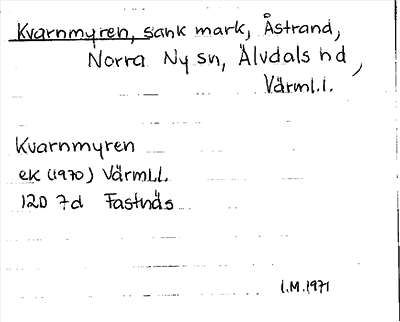 Kvarnmyren, sank mark, Åstrand,
Norra Ny sn, Älvdals hd,
Värml.l.
Kvarnmyren
ek (1970) Värml.l.
12D 7d Fastnäs
I.M. 1971